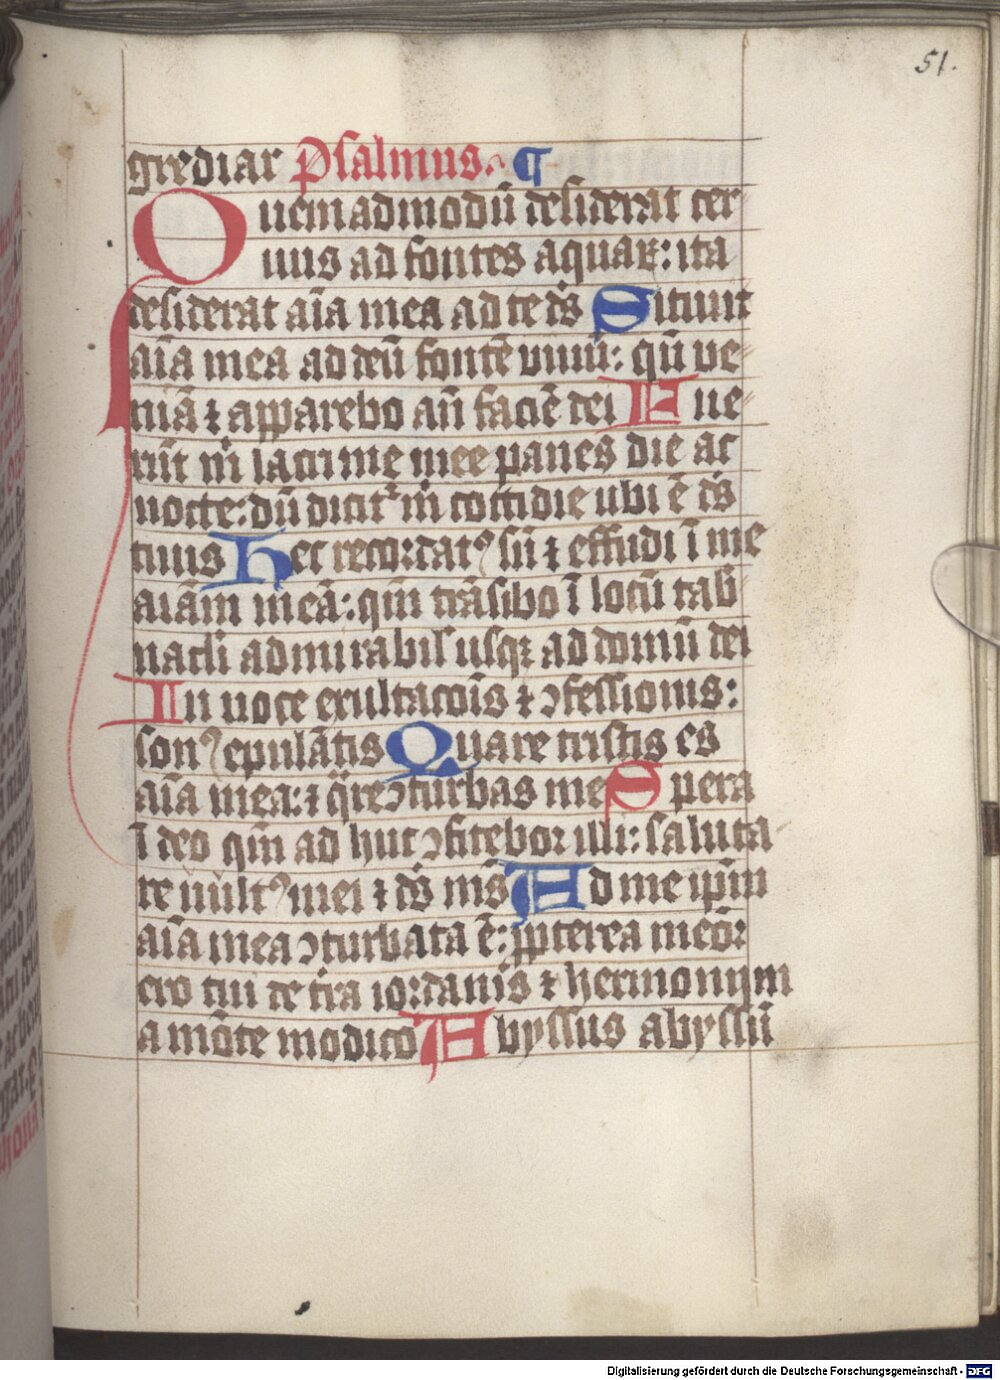 51.
grediar Psalmus. ¶
Quemadmodū desiderat cer
uus ad fontes aquaꝝ: ita
desiderat aīa mea ad te ds̄ Sitiuit
aīa mea ad deū fontē viuū: qn̄ ve
niā ⁊ apparebo an̄ faciē dei Fue
rūt m̄ lacrime mee panes die ac
nocte: dū dicit᷑ m̄ cottidie ubi ē ds̄
tuus Hec recordatꝰ sū ⁊ effudi ī me
aīam meā: qm̄ trāsibo ī locū tab̄
nacli admirabil usqꝫ ad domū dei
In uoce exultacōis ⁊ ꝯfessionis:
sonꝰ epulātis Quare tristis es
aīa mea: ⁊ q̄re ꝯturbas me Spera
ī deo qm̄ ad huc ꝯfitebor illi: saluta
re uultꝰ mei ⁊ ds̄ ms̄ Ad me ip̄m
aīa mea ꝯturbata ē: ꝓpterea memōr
ero tui de t̄ra iordanis ⁊ hermonijm
a mōte modico Abyssus abyssū
Digitalisierung gefördert durch die Deutsche Forschungsgemeinschaft - DFG